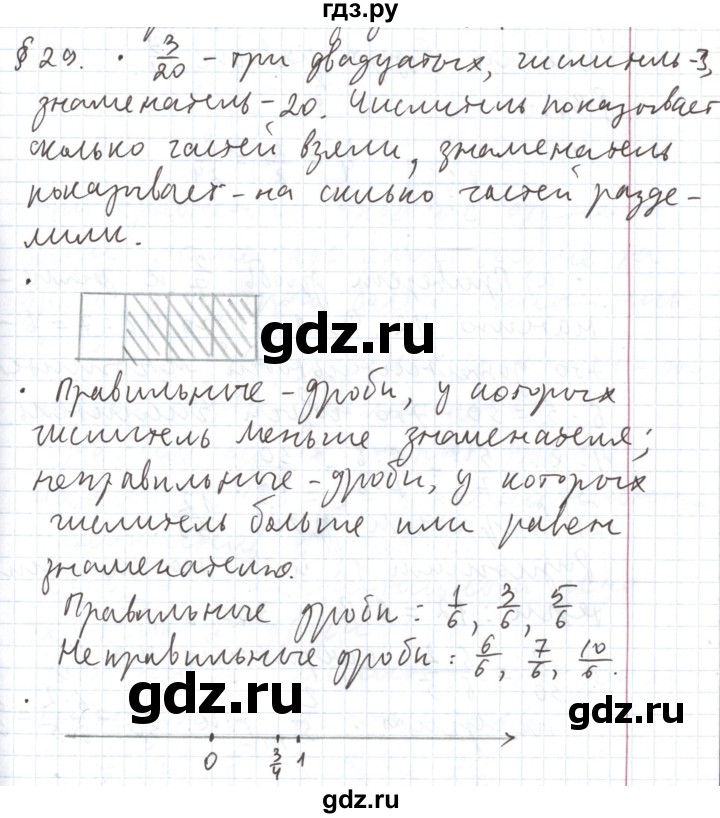 гдз.ру
§ 29. · 3/20 – три двадцатых, числитель-3,
знаменатель – 20. Числитель показывает
сколько частей взяли, знаменатель
показывает – на сколько частей разде-
лили.
·
gdz.ru
· Правильные – дроби, у которых
числитель меньше знаменателя;
неправильные – дроби, у которых
числитель больше или равен
знаменателю.
Правильные дроби: 1/6, 3/6, 5/6
Неправильные дроби: 6/6, 7/6, 10/6.
gdz.ru
·
0 3/4 1
gdz.ru